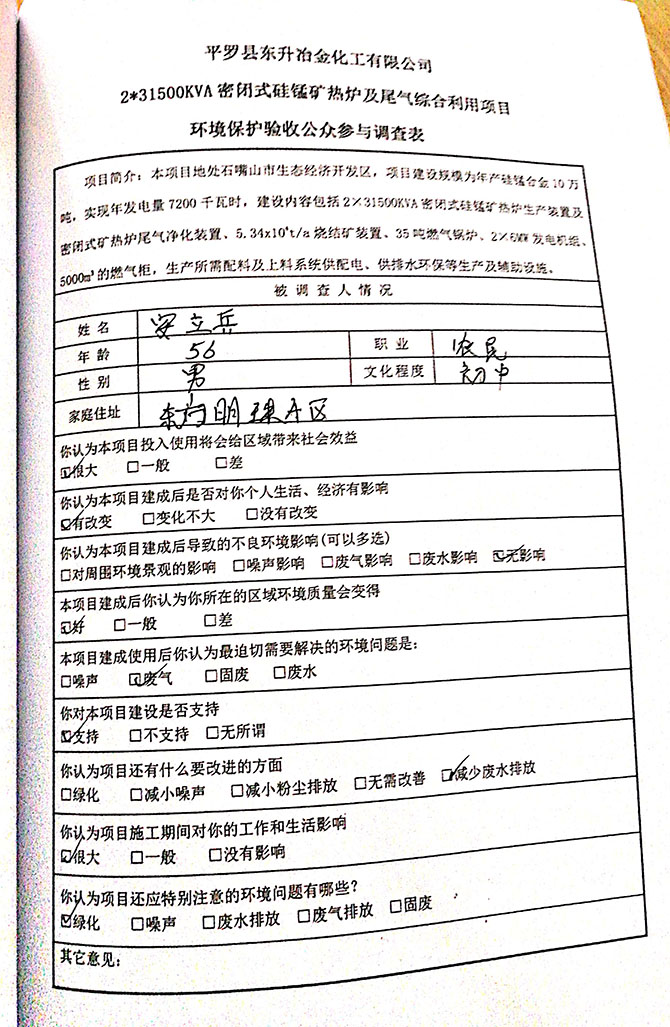 平罗县东升冶金化工有限公司
2*31500KVA密闭式硅锰矿热炉及尾气综合利用项目
环境保护验收公众参与调查表
项目简介：本项目地处石嘴山市生态经济开发区，项目建设规模为年产硅锰合金10万
吨，实现年发电量7200千瓦时，建设内容包括2×31500KVA密闭式硅锰矿热炉生产装置及
密闭式矿热炉尾气净化装置、5.34x10⁴t/a烧结矿装置、35吨燃气锅炉、2×6MW发电机组、
5000m³的燃气柜，生产所需配料及上料系统供配电、供排水环保等生产及辅助设施。
被调查人情况
姓名 立兵
年龄 56 职业 农民
性别 男 文化程度 初中
家庭住址 东尚明珠A区
你认为本项目投入使用将会给区域带来社会效益
☑很大 □一般 □差
你认为本项目建成后是否对你个人生活、经济有影响
☑有改变 □变化不大 □没有改变
你认为本项目建成后导致的不良环境影响(可以多选)
□对周围环境景观的影响 □噪声影响 □废气影响 □废水影响 ☑无影响
本项目建成后你认为你所在的区域环境质量会变得
☑好 □一般 □差
本项目建成使用后你认为最迫切需要解决的环境问题是：
□噪声 ☑废气 □固废 □废水
你对本项目建设是否支持
☑支持 □不支持 □无所谓
你认为项目还有什么要改进的方面
□绿化 □减小噪声 □减小粉尘排放 □无需改善 ☑减少废水排放
你认为项目施工期间对你的工作和生活影响
☑很大 □一般 □没有影响
你认为项目还应特别注意的环境问题有哪些？
☑绿化 □噪声 □废水排放 □废气排放 □固废
其它意见：